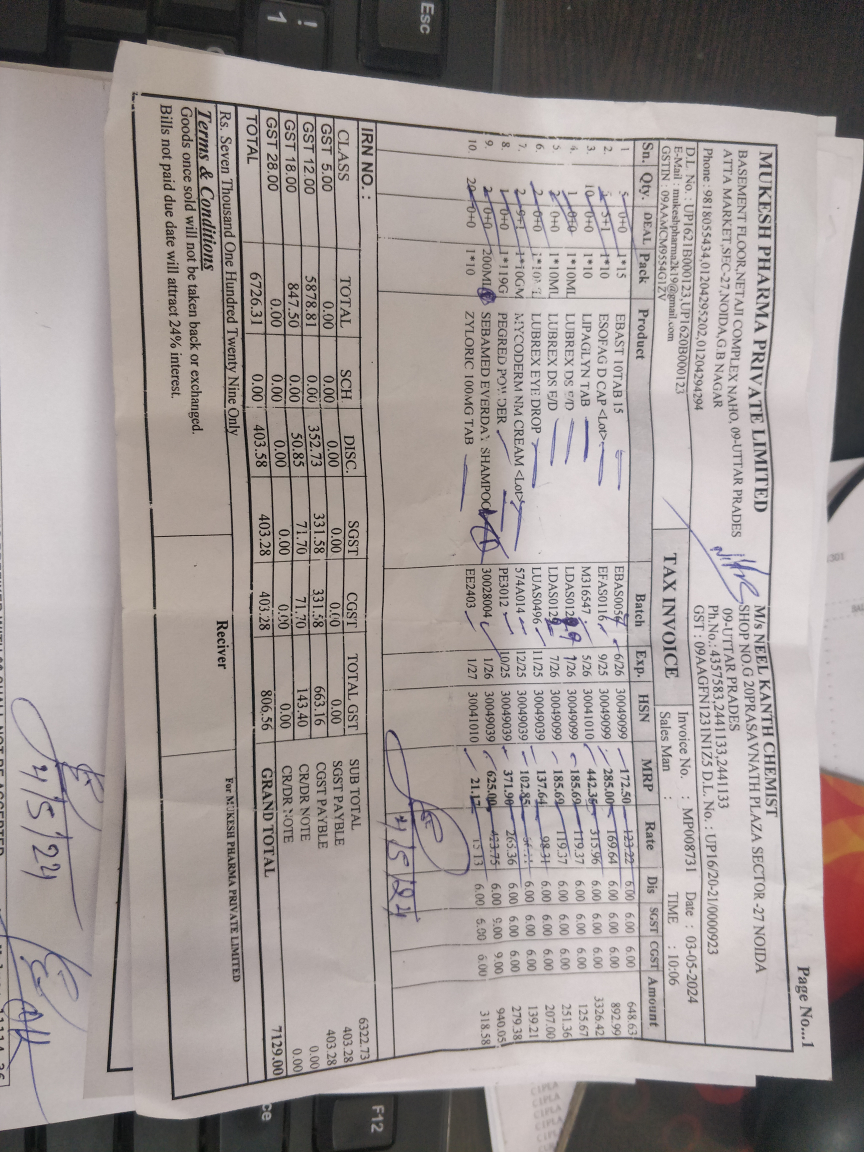 Page No...1
MUKESH PHARMA PRIVATE LIMITED
BASEMENT FLOOR,NETAJI COMPLEX NAHO, 09-UTTAR PRADES
ATTA MARKET,SEC-27,NOIDA,G.B NAGAR
Phone : 9818055434,01204295202,01204294294
D.L. No. : UP1621B000123,UP1620B000123
E-Mail : mukeshpharma2k19@gmail.com
GSTIN : 09AAMCM9554G1ZV
M/s NEEL KANTH CHEMIST
SHOP NO.G 20PRASAVNATH PLAZA SECTOR -27 NOIDA
09-UTTAR PRADES
Ph.No.: 4357583,2441133,2441133
GST : 09AAGFN1231N1Z5 D.L. No. : UP16/20-21/0000923
TAX INVOICE
Invoice No. : MP008731 Date : 03-05-2024
Sales Man : TIME : 10:06
Sn. Qty. DEAL Pack Product Batch Exp. HSN MRP Rate Dis SGST CGST Amount
1 5 0+0 1*15 EBAST 10TAB 15 EBAS0054 6/26 30049099 172.50 123.22 6.00 6.00 6.00 648.63
2. 5+1 1*10 ESOFAG D CAP <Lot> EFAS0116 9/25 30049099 285.00 169.64 6.00 6.00 6.00 892.99
3. 10 0+0 1*10 LIPAGLYN TAB M316547 5/26 30041010 442.35 315.96 6.00 6.00 6.00 3326.42
4. 1 0+0 1*10ML LUBREX DS E/D 7/26 30049099 185.69 119.37 6.00 6.00 6.00 125.67
5. 2 0+0 1*10ML LUBREX DS E/D 7/26 30049099 185.69 119.37 6.00 6.00 6.00 251.36
6. 2 0+0 LUBREX EYE DROP LUAS0496 11/25 30049039 137.64 98.31 6.00 6.00 6.00 207.00
7. 2 9+1 1*10GM MYCODERM NM CREAM <Lot> 574A014 12/25 30049039 102.85 6.00 6.00 6.00 139.21
8. 1 0+0 1*119G PEGRED POWDER PE3012 10/25 30049039 371.90 265.36 6.00 6.00 6.00 279.38
9. 2 0+0 200ML SEBAMED EVERDAY SHAMPOO 30028004 1/26 30049039 625.00 423.75 6.00 9.00 9.00 940.05
10. 20 0+0 1*10 ZYLORIC 100MG TAB EE2403 1/27 30041010 21.17 15.13 6.00 6.00 6.00 318.58
4/5/24
IRN NO. :
CLASS TOTAL SCH DISC. SGST CGST TOTAL GST
GST 5.00 0.00 0.00 0.00 0.00 0.00 0.00
GST 12.00 5878.81 0.00 352.73 331.58 331.58 663.16
GST 18.00 847.50 0.00 50.85 71.70 71.70 143.40
GST 28.00 0.00 0.00 0.00 0.00 0.00 0.00
TOTAL 6726.31 0.00 403.58 403.28 403.28 806.56
SUB TOTAL 6322.73
SGST PAYBLE 403.28
CGST PAYBLE 403.28
CR/DR NOTE 0.00
CR/DR NOTE 0.00
GRAND TOTAL 7129.00
Rs. Seven Thousand One Hundred Twenty Nine Only
Terms & Conditions
Goods once sold will not be taken back or exchanged.
Bills not paid due date will attract 24% interest.
Reciver
For MUKESH PHARMA PRIVATE LIMITED
4/5/24
Esc
!
1
F12
CIPLA
CIPLA
CIPLA